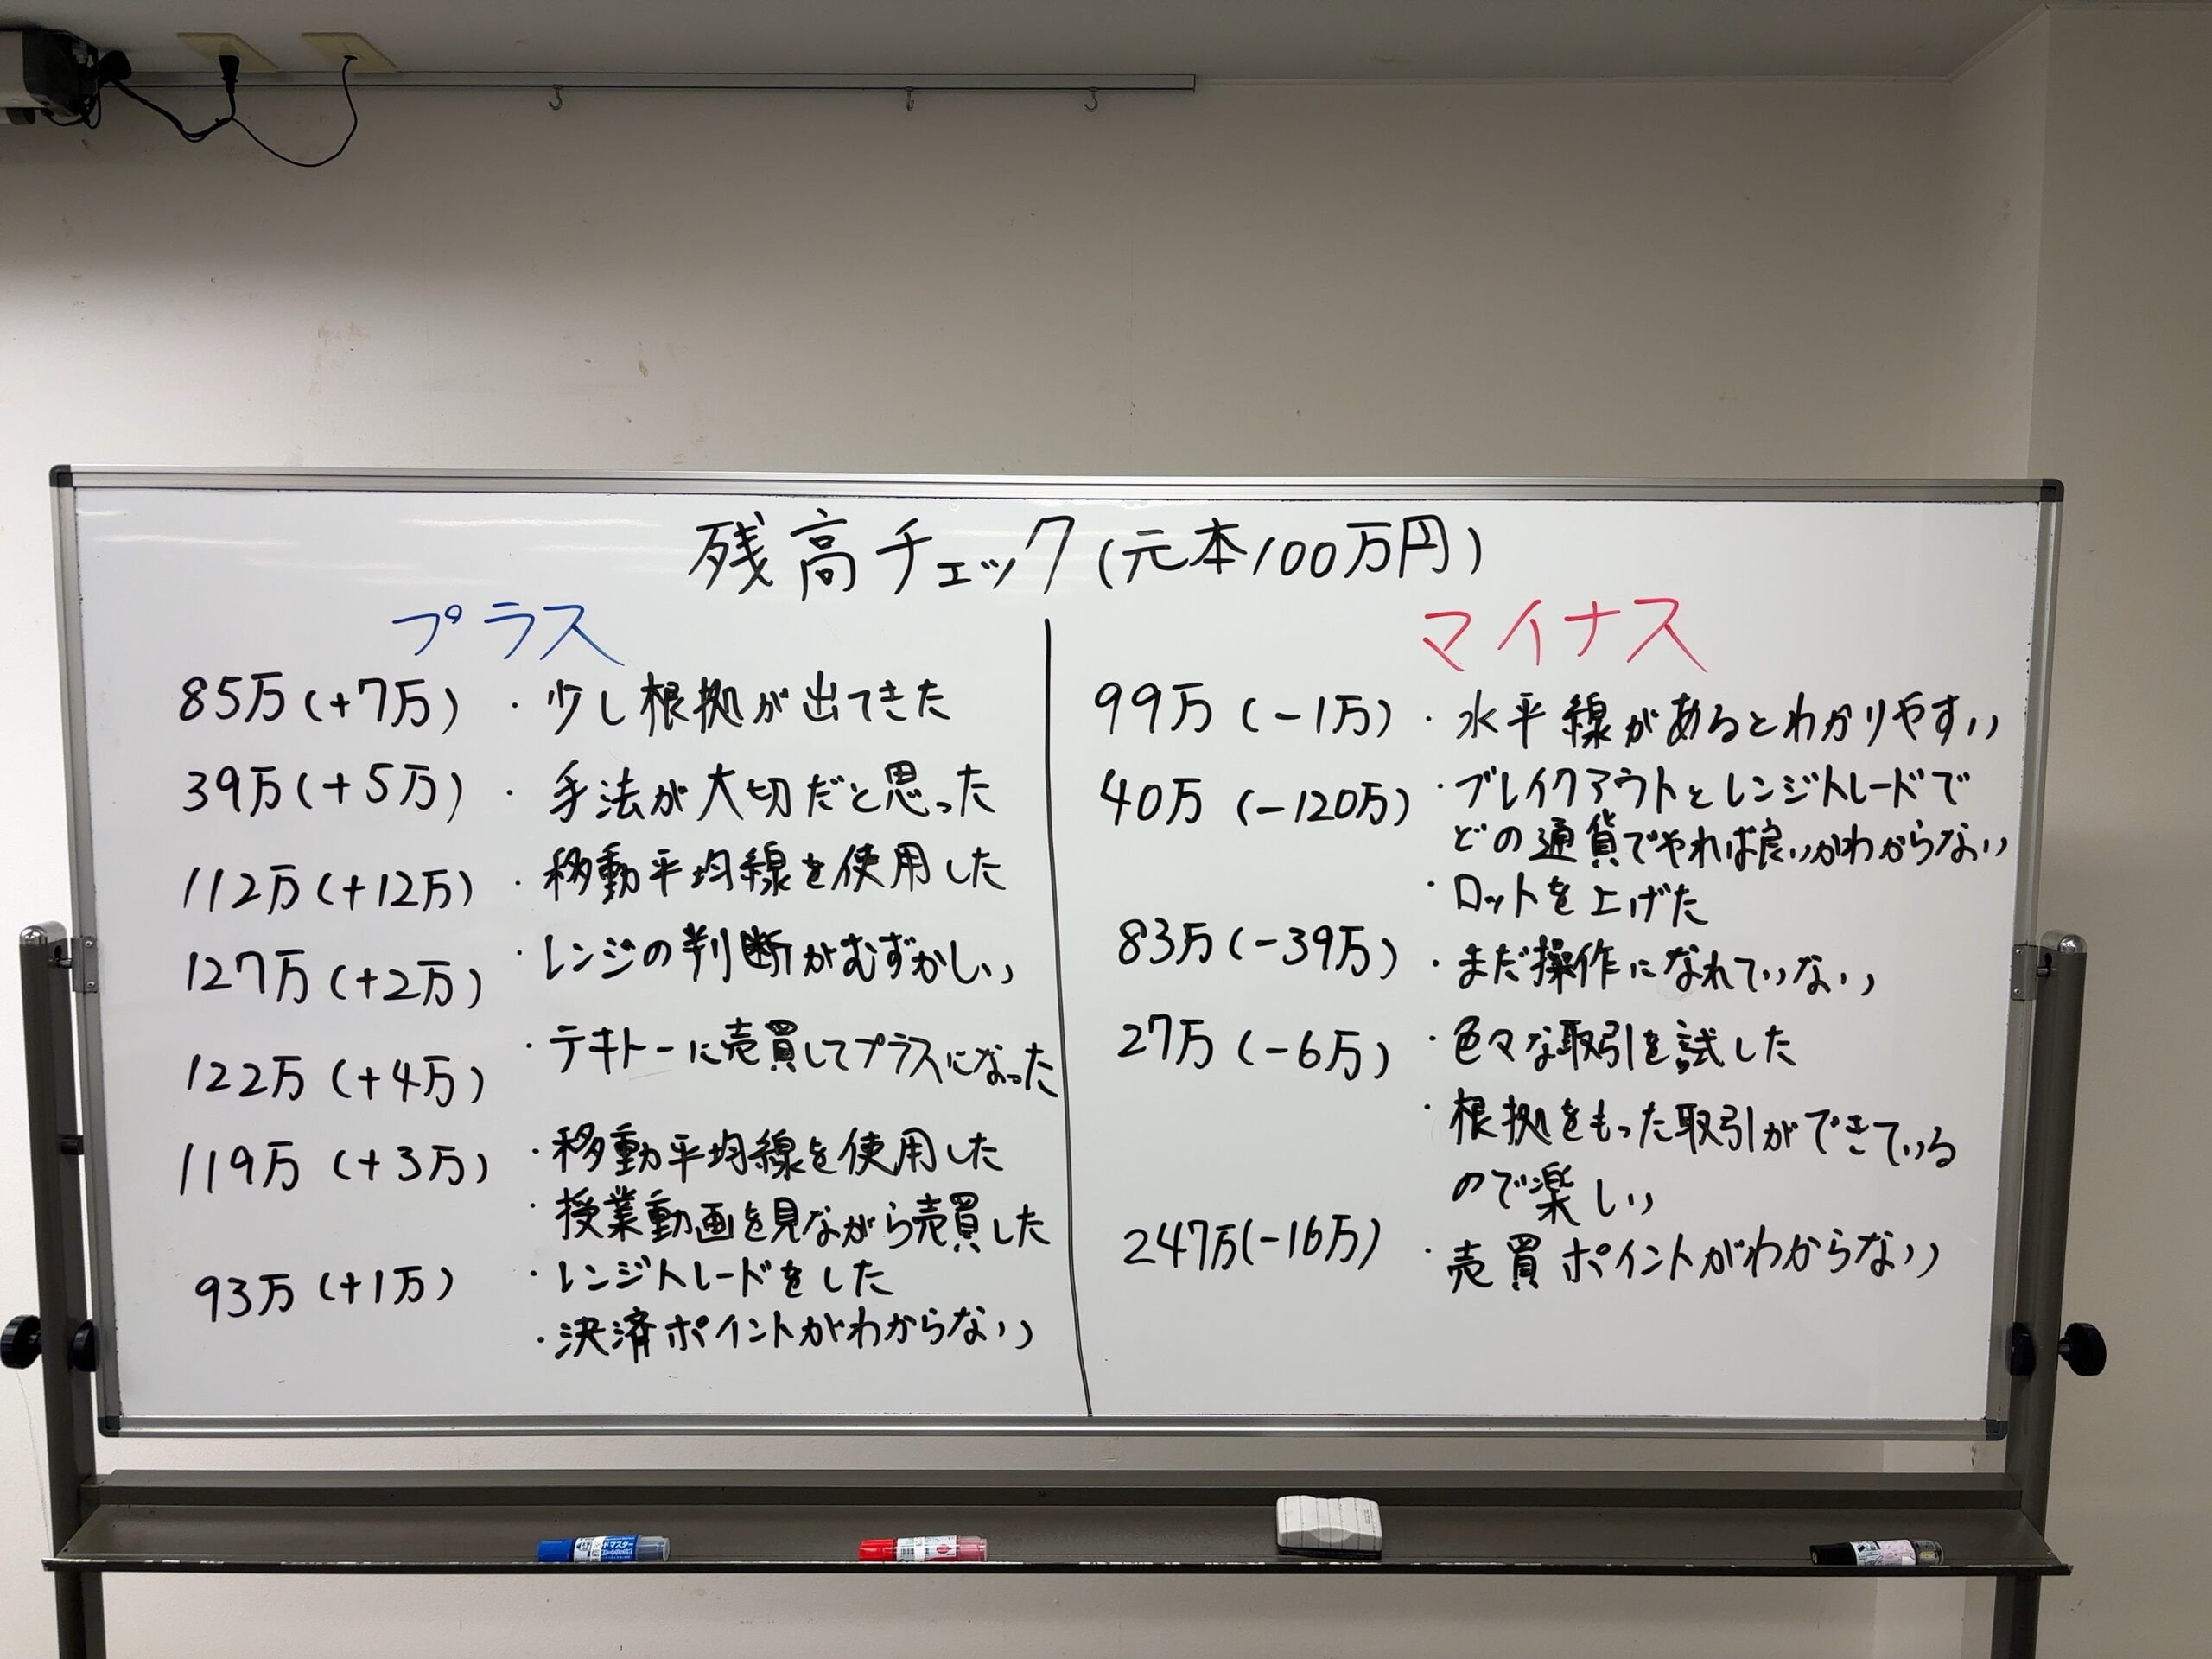 残高チェック(元本100万円)
プラス
85万(+7万) ・少し根拠が出てきた
39万(+5万) ・手法が大切だと思った
112万(+12万) ・移動平均線を使用した
127万(+2万) ・レンジの判断がむずかしい
122万(+4万) ・テキトーに売買してプラスになった
119万(+3万) ・移動平均線を使用した
・授業動画を見ながら売買した
93万(+1万) ・レンジトレードをした
・決済ポイントがわからない
マイナス
99万(-1万) ・水平線があるとわかりやすい
40万(-120万) ・ブレイクアウトとレンジトレードで
どの通貨でやれば良いかわからない
・ロットを上げた
83万(-39万) ・まだ操作になれていない
27万(-6万) ・色々な取引を試した
・根拠をもった取引ができている
ので楽しい
247万(-16万) ・売買ポイントがわからない